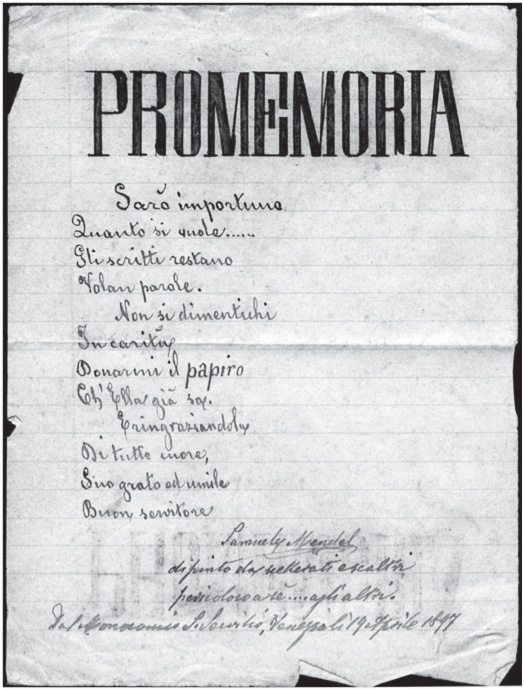 PROMEMORIA
Sarò importuno
Quanto si vuole......
Gli scritti restano
Volan parole.
Non si dimentichi
In carità
Donarmi il papiro
Ch'Ella già sa.
E ringraziandola
Di tutto cuore,
Suo grato ed umile
Buon servitore
Samuely Mendel
dipinto da scellerati e scaltri
pericoloso a sè.... agli altri.
Dal Manicomio S. Servilio, Venezia li 19 Aprile 1897